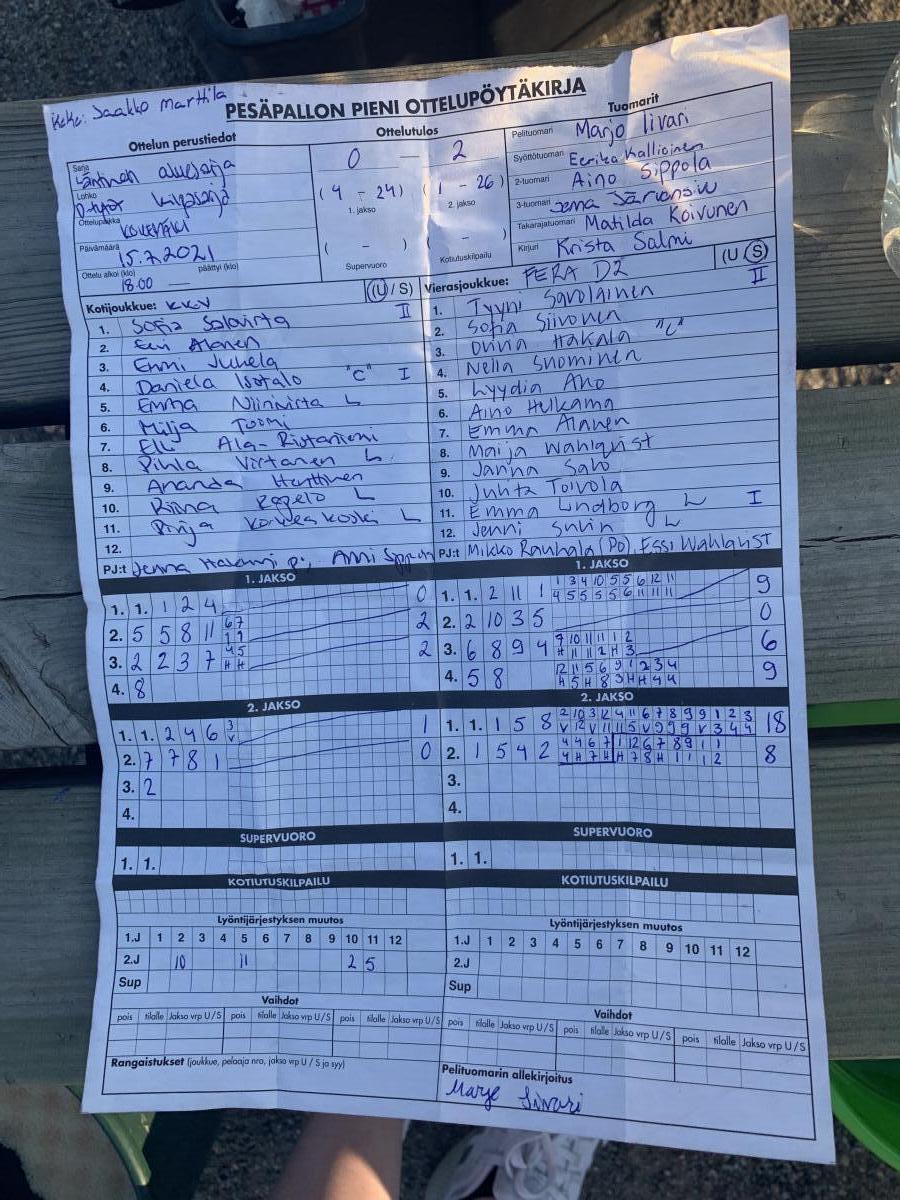 KeKe: Jaakko Marttila
PESÄPALLON PIENI OTTELUPÖYTÄKIRJA
Ottelun perustiedot
Sarja
Läntinen aluesarja
Lohko
D-tytöt kilpasarja
Ottelupaikka
Päivämäärä
15.7.2021
Ottelu alkoi (klo) päättyi (klo)
18.00 —
Ottelutulos
0 — 2
(4 - 24) (1 - 26)
1. jakso 2. jakso
( - ) ( - )
Supervuoro Kotiutuskilpailu
Tuomarit
Pelituomari Marjo Iivari
Syöttötuomari Eerika Kallioinen
2-tuomari Aino Sippola
3-tuomari Jenna
Takarajatuomari Matilda Koivunen
Kirjuri Krista Salmi
Kotijoukkue: KKV (U / S)
II
1. Sofia Salovirta
2. Eevi Alanen
3. Emmi Juhela
4. Daniela Isotalo "C" I
5. Emma Niinivirta L
6. Milja Tuomi
7. Elli Ala-Ristaniemi
8. Pihla Virtanen L
9. Amanda Henttinen
10. Riina L
11. Pinja Korkeakoski L
12.
PJ:t Jenna p; Anni
Vierasjoukkue: FERA D2 (U / S)
II
1. Tyyni Savolainen
2. Sofia Siivonen
3. Oona Hakala "C"
4. Nella Suominen
5. Lyydia Aho
6. Aino Hulkama
7. Emma Alanen
8. Maija Wahlqvist
9. Janna Salo
10. Juhta Toivola
11. Emma Lindborg L I
12. Jenni L
PJ:t Mikko Rauhala (PO), Essi Wahlqvist
1. JAKSO
1. 1. 1 2 4 0
2. 5 5 8 11 6 7 2
1 1
3. 2 2 3 7 4 5 2
H H
4. 8
2. JAKSO
1. 1. 2 4 6 3 1
V
2. 7 7 8 1 0
3. 2
4.
SUPERVUORO
1. 1.
KOTIUTUSKILPAILU
1. JAKSO
1. 1. 2 11 1 1 3 4 10 5 5 6 12 11 9
4 5 5 5 5 6 11 11 11
2. 2 10 3 5 0
3. 6 8 9 4 9 10 11 11 1 2 6
H 11 11 2 H 3
4. 5 8 12 11 5 6 9 1 2 3 4 9
H 5 H 8 3 H H 4 4
2. JAKSO
1. 1. 1 5 8 2 10 3 12 4 11 6 7 8 9 9 1 2 3 18
V 12 V 11 11 5 V 9 9 9 V 3 4 4
2. 1 5 4 2 4 4 6 7 1 12 6 7 8 9 1 1 8
4 H 7 H H 7 8 H 1 1 1 2
3.
4.
SUPERVUORO
1. 1.
KOTIUTUSKILPAILU
Lyöntijärjestyksen muutos
1.J 1 2 3 4 5 6 7 8 9 10 11 12
2.J 10 11 2 5
Sup
Vaihdot
pois tilalle Jakso vrp U/S pois tilalle Jakso vrp U/S pois tilalle Jakso vrp U/S
Rangaistukset (joukkue, pelaaja nro, jakso vrp U / S ja syy)
Lyöntijärjestyksen muutos
1.J 1 2 3 4 5 6 7 8 9 10 11 12
2.J
Sup
Vaihdot
pois tilalle Jakso vrp U/S pois tilalle Jakso vrp U/S pois tilalle Jakso vrp U/S
Pelituomarin allekirjoitus
Marjo Iivari